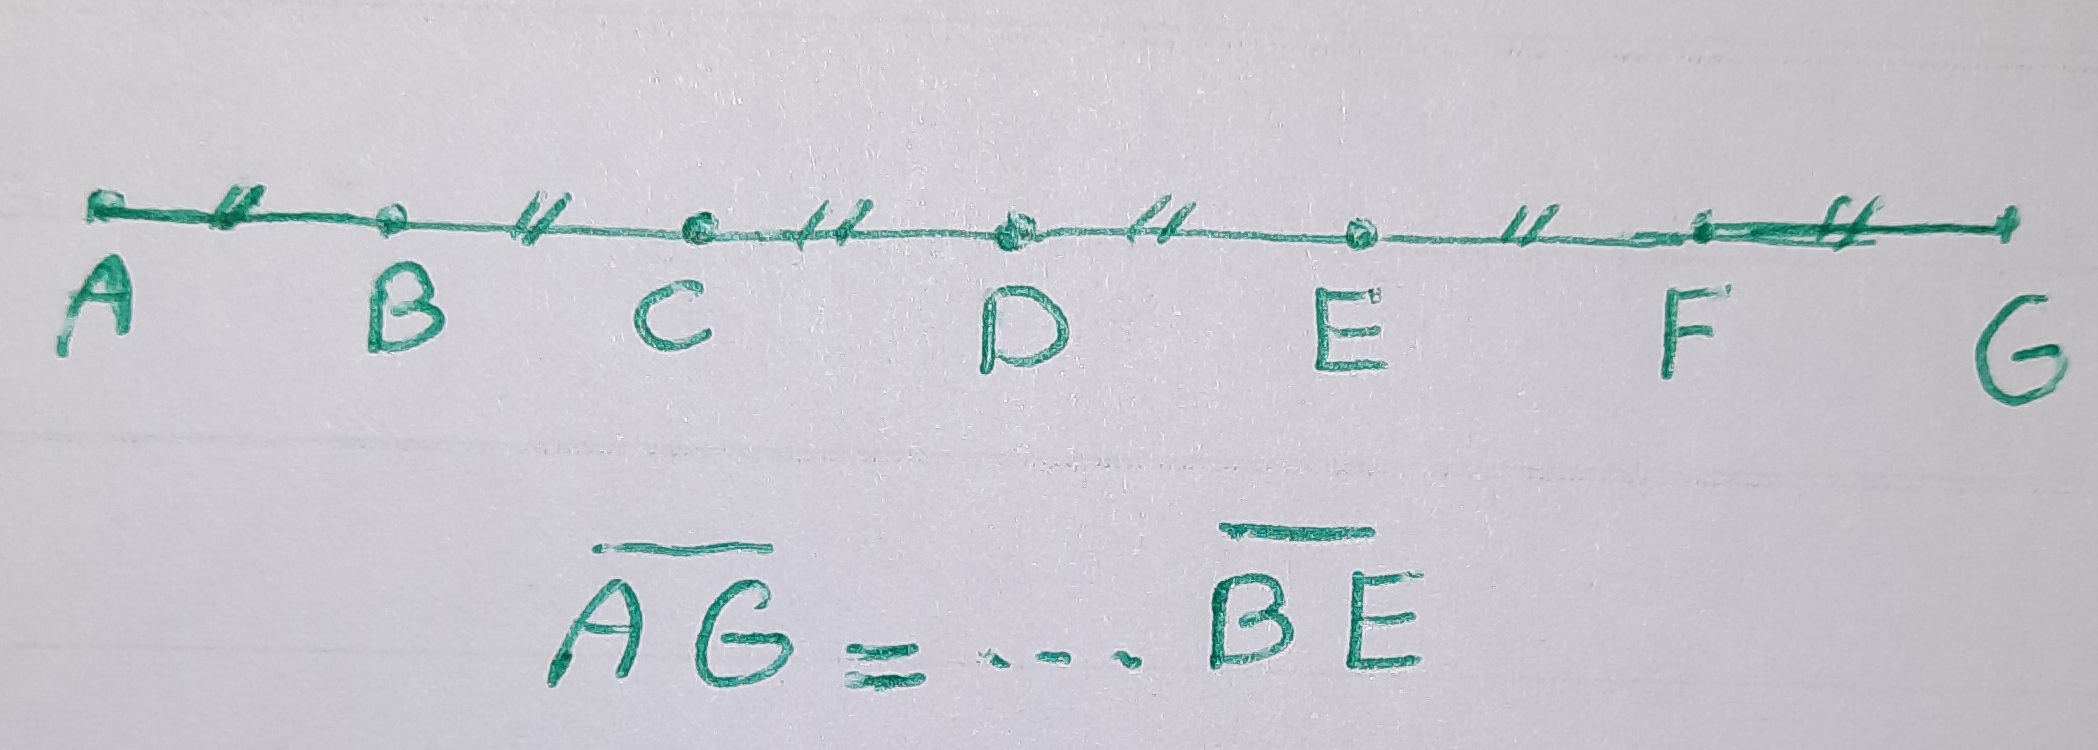 A B C D E F G
A̅G̅ = ... B̅E̅